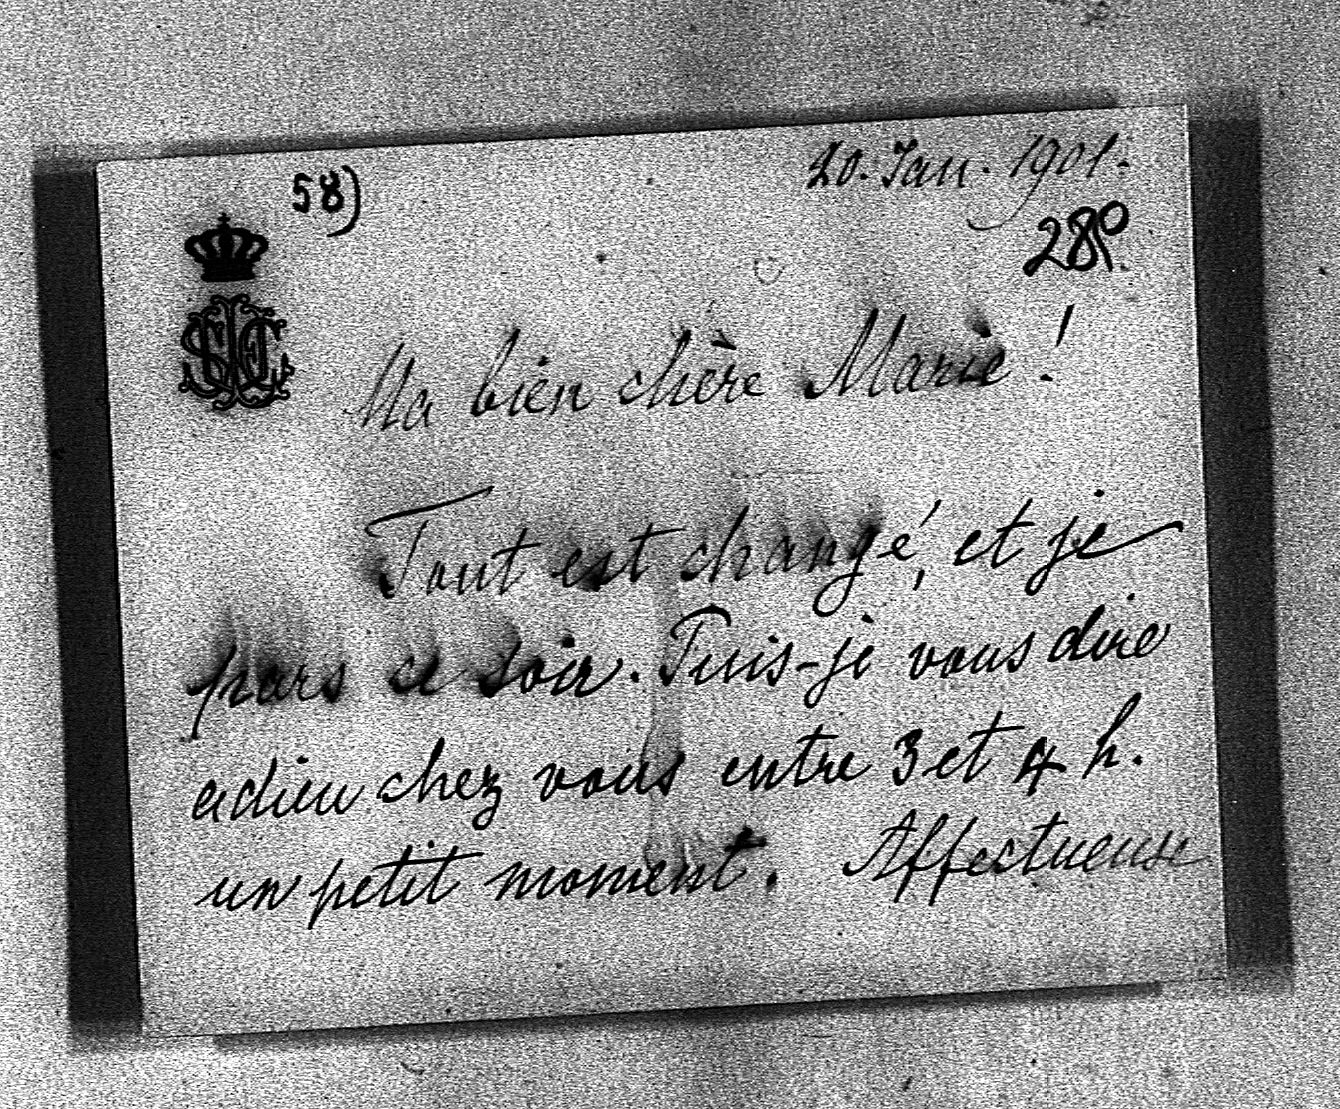 58)
20. Jan. 1901.
28º
Ma bien chère Marie !
Tout est changé, et je
pars ce soir. Puis-je vous dire
adieu chez vous entre 3 et 4 h.
un petit moment. Affectueuse